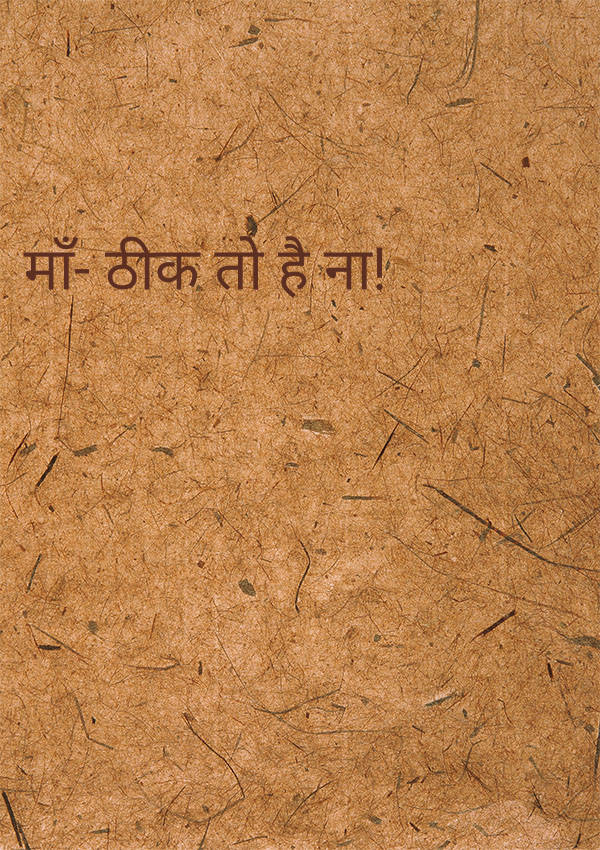 माँ- ठीक तो है ना!